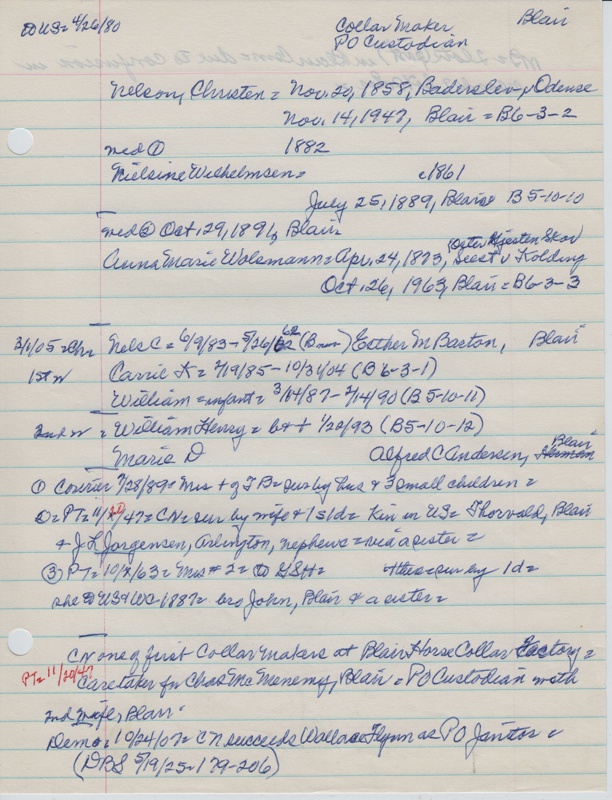 to US = 4/26/80
Collar Maker Blair
PO Custodian
Nelson, Christen = Nov. 20, 1858, Baderslev v Odense
Nov. 14, 1947, Blair = B6-3-2
med ① 1882
Nielsine Wilhelmsen = c1861
July 25, 1889, Blair B5-10-10
med ② Oct. 29, 1891, Blair
Anna Marie Wolsmann = Apr. 24, 1873, Seest v Kolding
Oct. 26, 1963, Blair = B6-3-3
3/1/05 = Chr Nels C = 6/9/83 - 5/26/62 Esther M Barton, Blair
1st w Carrie K = 2/19/85 - 10/31/04 (B6-3-1)
William = infant = 3/14/87 - 2/14/90 (B5-10-11)
2nd w = William Henry = b + t 1/20/93 (B5-10-12)
Marie D Alfred C Andersen, Blair
① Courier 7/28/89 = Mrs + of TB = sur by hus & 3 small children =
PT = 11/20/47 = CN = sur by wife & 1s 1d = Kin in US = Thorvald, Blair
& J L Jorgensen, Arlington, nephews = via a sister =
③ PT = 10/ /63 = Mrs # 2 = sur by 1d =
she to US & WC 1887 = bro John, Blair & a sister =
CN one of first Collar Makers at Blair Horse Collar Factory =
PT = 11/20/47 Caretaker for Chas McMenemy, Blair = PO Custodian
2nd wife, Blair =
Demo = 10/24/07 = CN succeeds Wallace Flynn as PO Janitor =
(DBS 5/19/25 = 179-206)